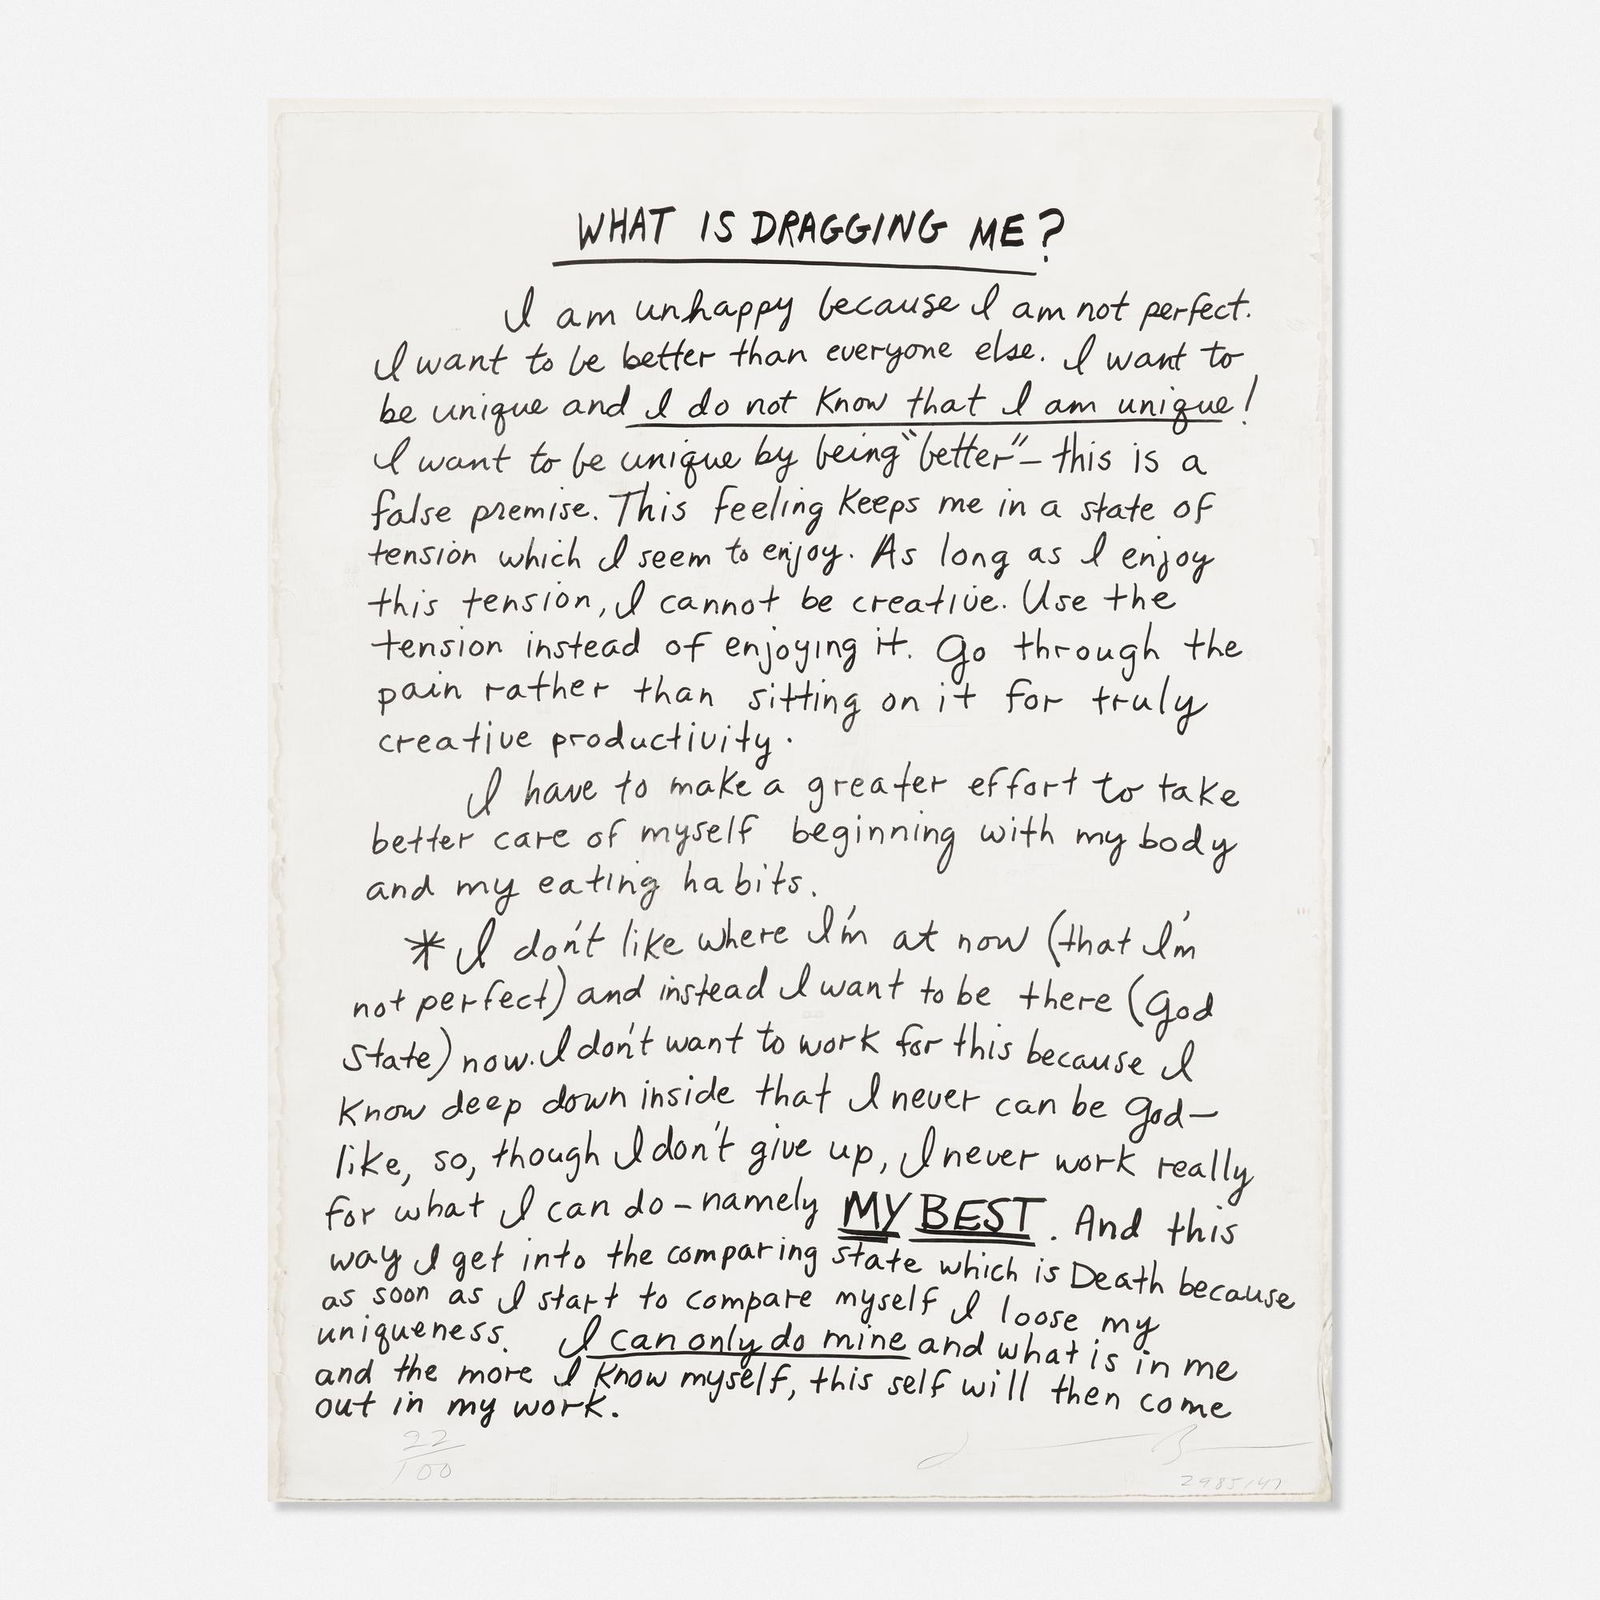 WHAT IS DRAGGING ME?
I am unhappy because I am not perfect.
I want to be better than everyone else. I want to
be unique and I do not know that I am unique!
I want to be unique by being "better" – this is a
false premise. This feeling keeps me in a state of
tension which I seem to enjoy. As long as I enjoy
this tension, I cannot be creative. Use the
tension instead of enjoying it. Go through the
pain rather than sitting on it for truly
creative productivity.
I have to make a greater effort to take
better care of myself beginning with my body
and my eating habits.
* I don't like where I'm at now (that I'm
not perfect) and instead I want to be there (God
state) now. I don't want to work for this because I
know deep down inside that I never can be God–
like, so, though I don't give up, I never work really
for what I can do – namely MY BEST. And this
way I get into the comparing state which is Death because
as soon as I start to compare myself I loose my
uniqueness. I can only do mine and what is in me
and the more I know myself, this self will then come
out in my work.
22/100
2985/47